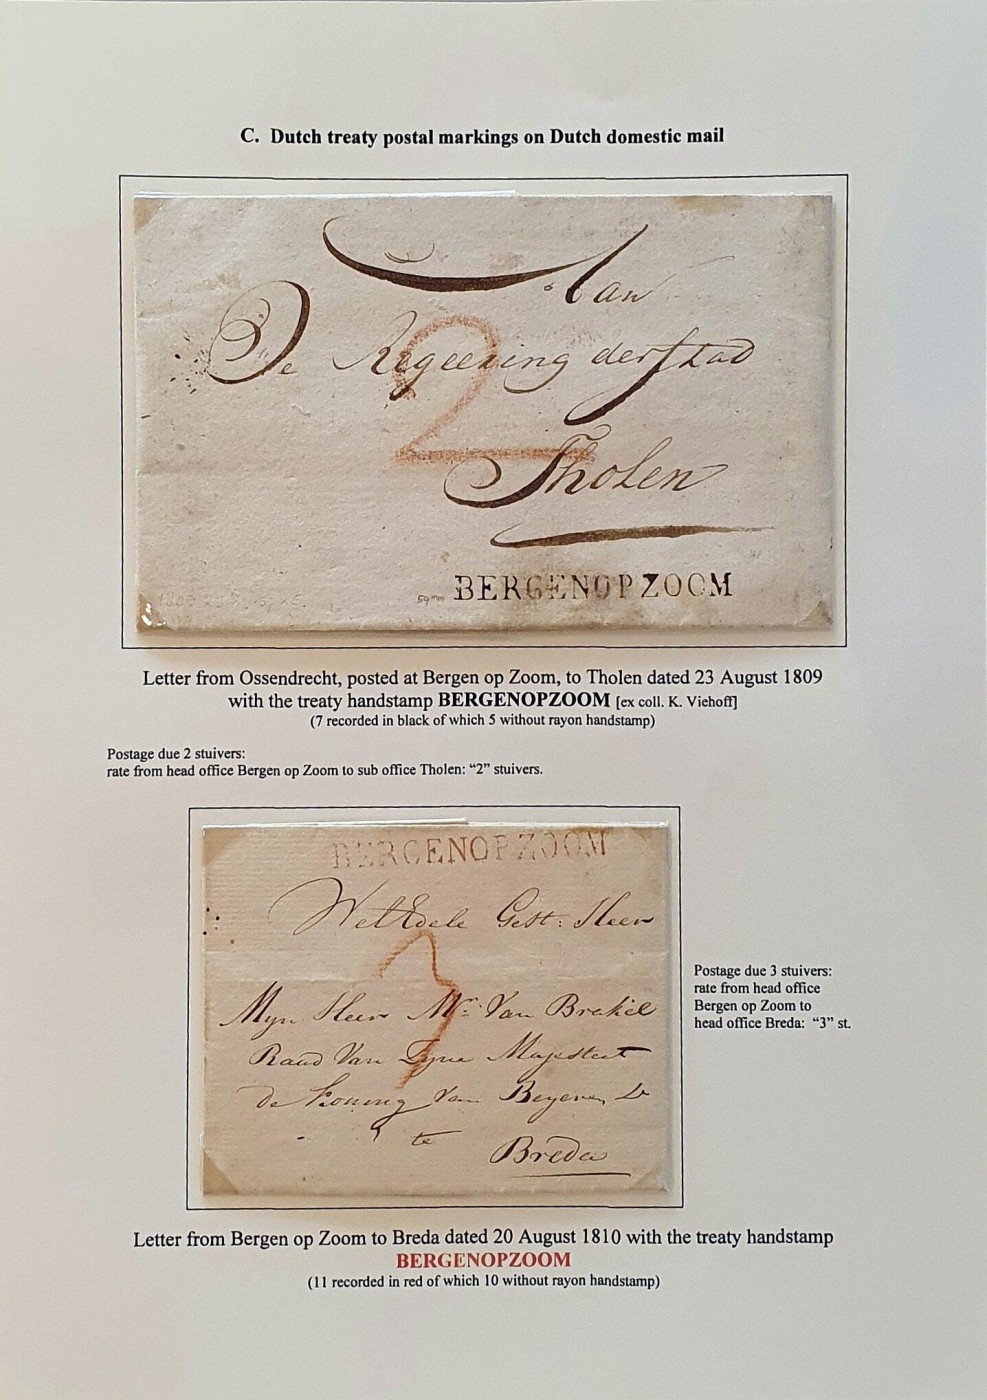 C. Dutch treaty postal markings on Dutch domestic mail
Aan
De Regeering der stad
2
Tholen
59mm BERGENOPZOOM
Letter from Ossendrecht, posted at Bergen op Zoom, to Tholen dated 23 August 1809
with the treaty handstamp BERGENOPZOOM [ex coll. K. Viehoff]
(7 recorded in black of which 5 without rayon handstamp)
Postage due 2 stuivers:
rate from head office Bergen op Zoom to sub office Tholen: “2” stuivers.
BERGENOPZOOM
WelEdele Gest: Heer
3
Myn Heer Mr. Van Brekel
Raad Van Zyne Majesteit
de Koning Van Beyeren
te
Breda
Postage due 3 stuivers:
rate from head office
Bergen op Zoom to
head office Breda: “3” st.
Letter from Bergen op Zoom to Breda dated 20 August 1810 with the treaty handstamp
BERGENOPZOOM
(11 recorded in red of which 10 without rayon handstamp)